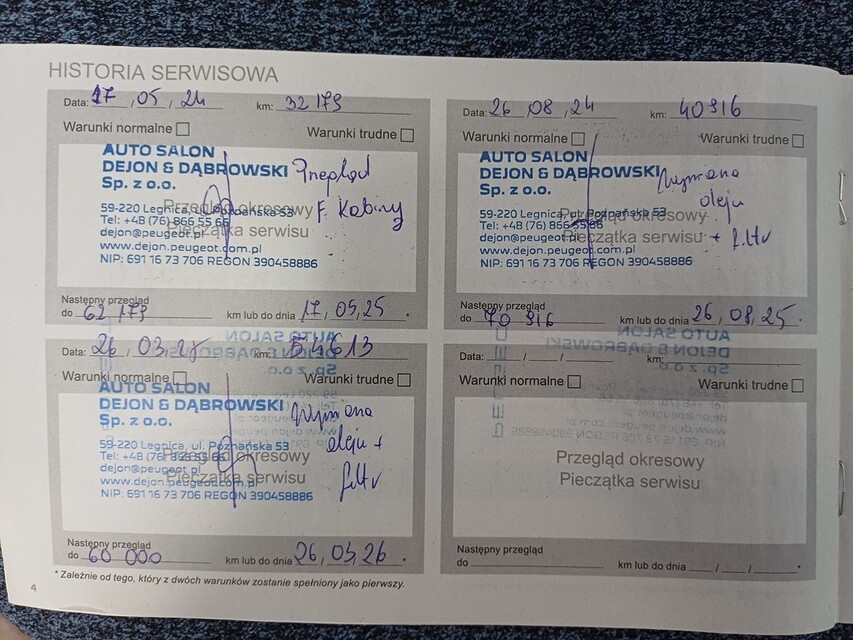 HISTORIA SERWISOWA
Data: 17, 05, 24 km: 32 179
Warunki normalne Warunki trudne
AUTO SALON
DEJON & DĄBROWSKI
Sp. z o.o.
Przegląd
F. Kabiny
59-220 Legnica, ul. Poznańska 53
Tel: +48 (76) 866 55 66
dejon@peugeot.pl
www.dejon.peugeot.com.pl
NIP: 691 16 73 706 REGON 390458886
Przegląd okresowy
Pieczątka serwisu
Następny przegląd
do 62 179 km lub do dnia 17, 05, 25.
Data: 26, 08, 24 km: 40916
Warunki normalne Warunki trudne
AUTO SALON
DEJON & DĄBROWSKI
Sp. z o.o.
Wymiana
oleju
+ filtr
59-220 Legnica, ul. Poznańska 53
Tel: +48 (76) 866 55 66
dejon@peugeot.pl
www.dejon.peugeot.com.pl
NIP: 691 16 73 706 REGON 390458886
Przegląd okresowy
Pieczątka serwisu
Następny przegląd
do 70 916 km lub do dnia 26, 08, 25.
Data: 26, 03, 25 km: 54613
Warunki normalne Warunki trudne
AUTO SALON
DEJON & DĄBROWSKI
Sp. z o.o.
Wymiana
oleju +
filtr
59-220 Legnica, ul. Poznańska 53
Tel: +48 (76) 866 55 66
dejon@peugeot.pl
www.dejon.peugeot.com.pl
NIP: 691 16 73 706 REGON 390458886
Przegląd okresowy
Pieczątka serwisu
Następny przegląd
do 60 000 km lub do dnia 26, 03, 26.
Data: / / km:
Warunki normalne Warunki trudne
Przegląd okresowy
Pieczątka serwisu
Następny przegląd
do km lub do dnia / / *
* Zależnie od tego, który z dwóch warunków zostanie spełniony jako pierwszy.
4